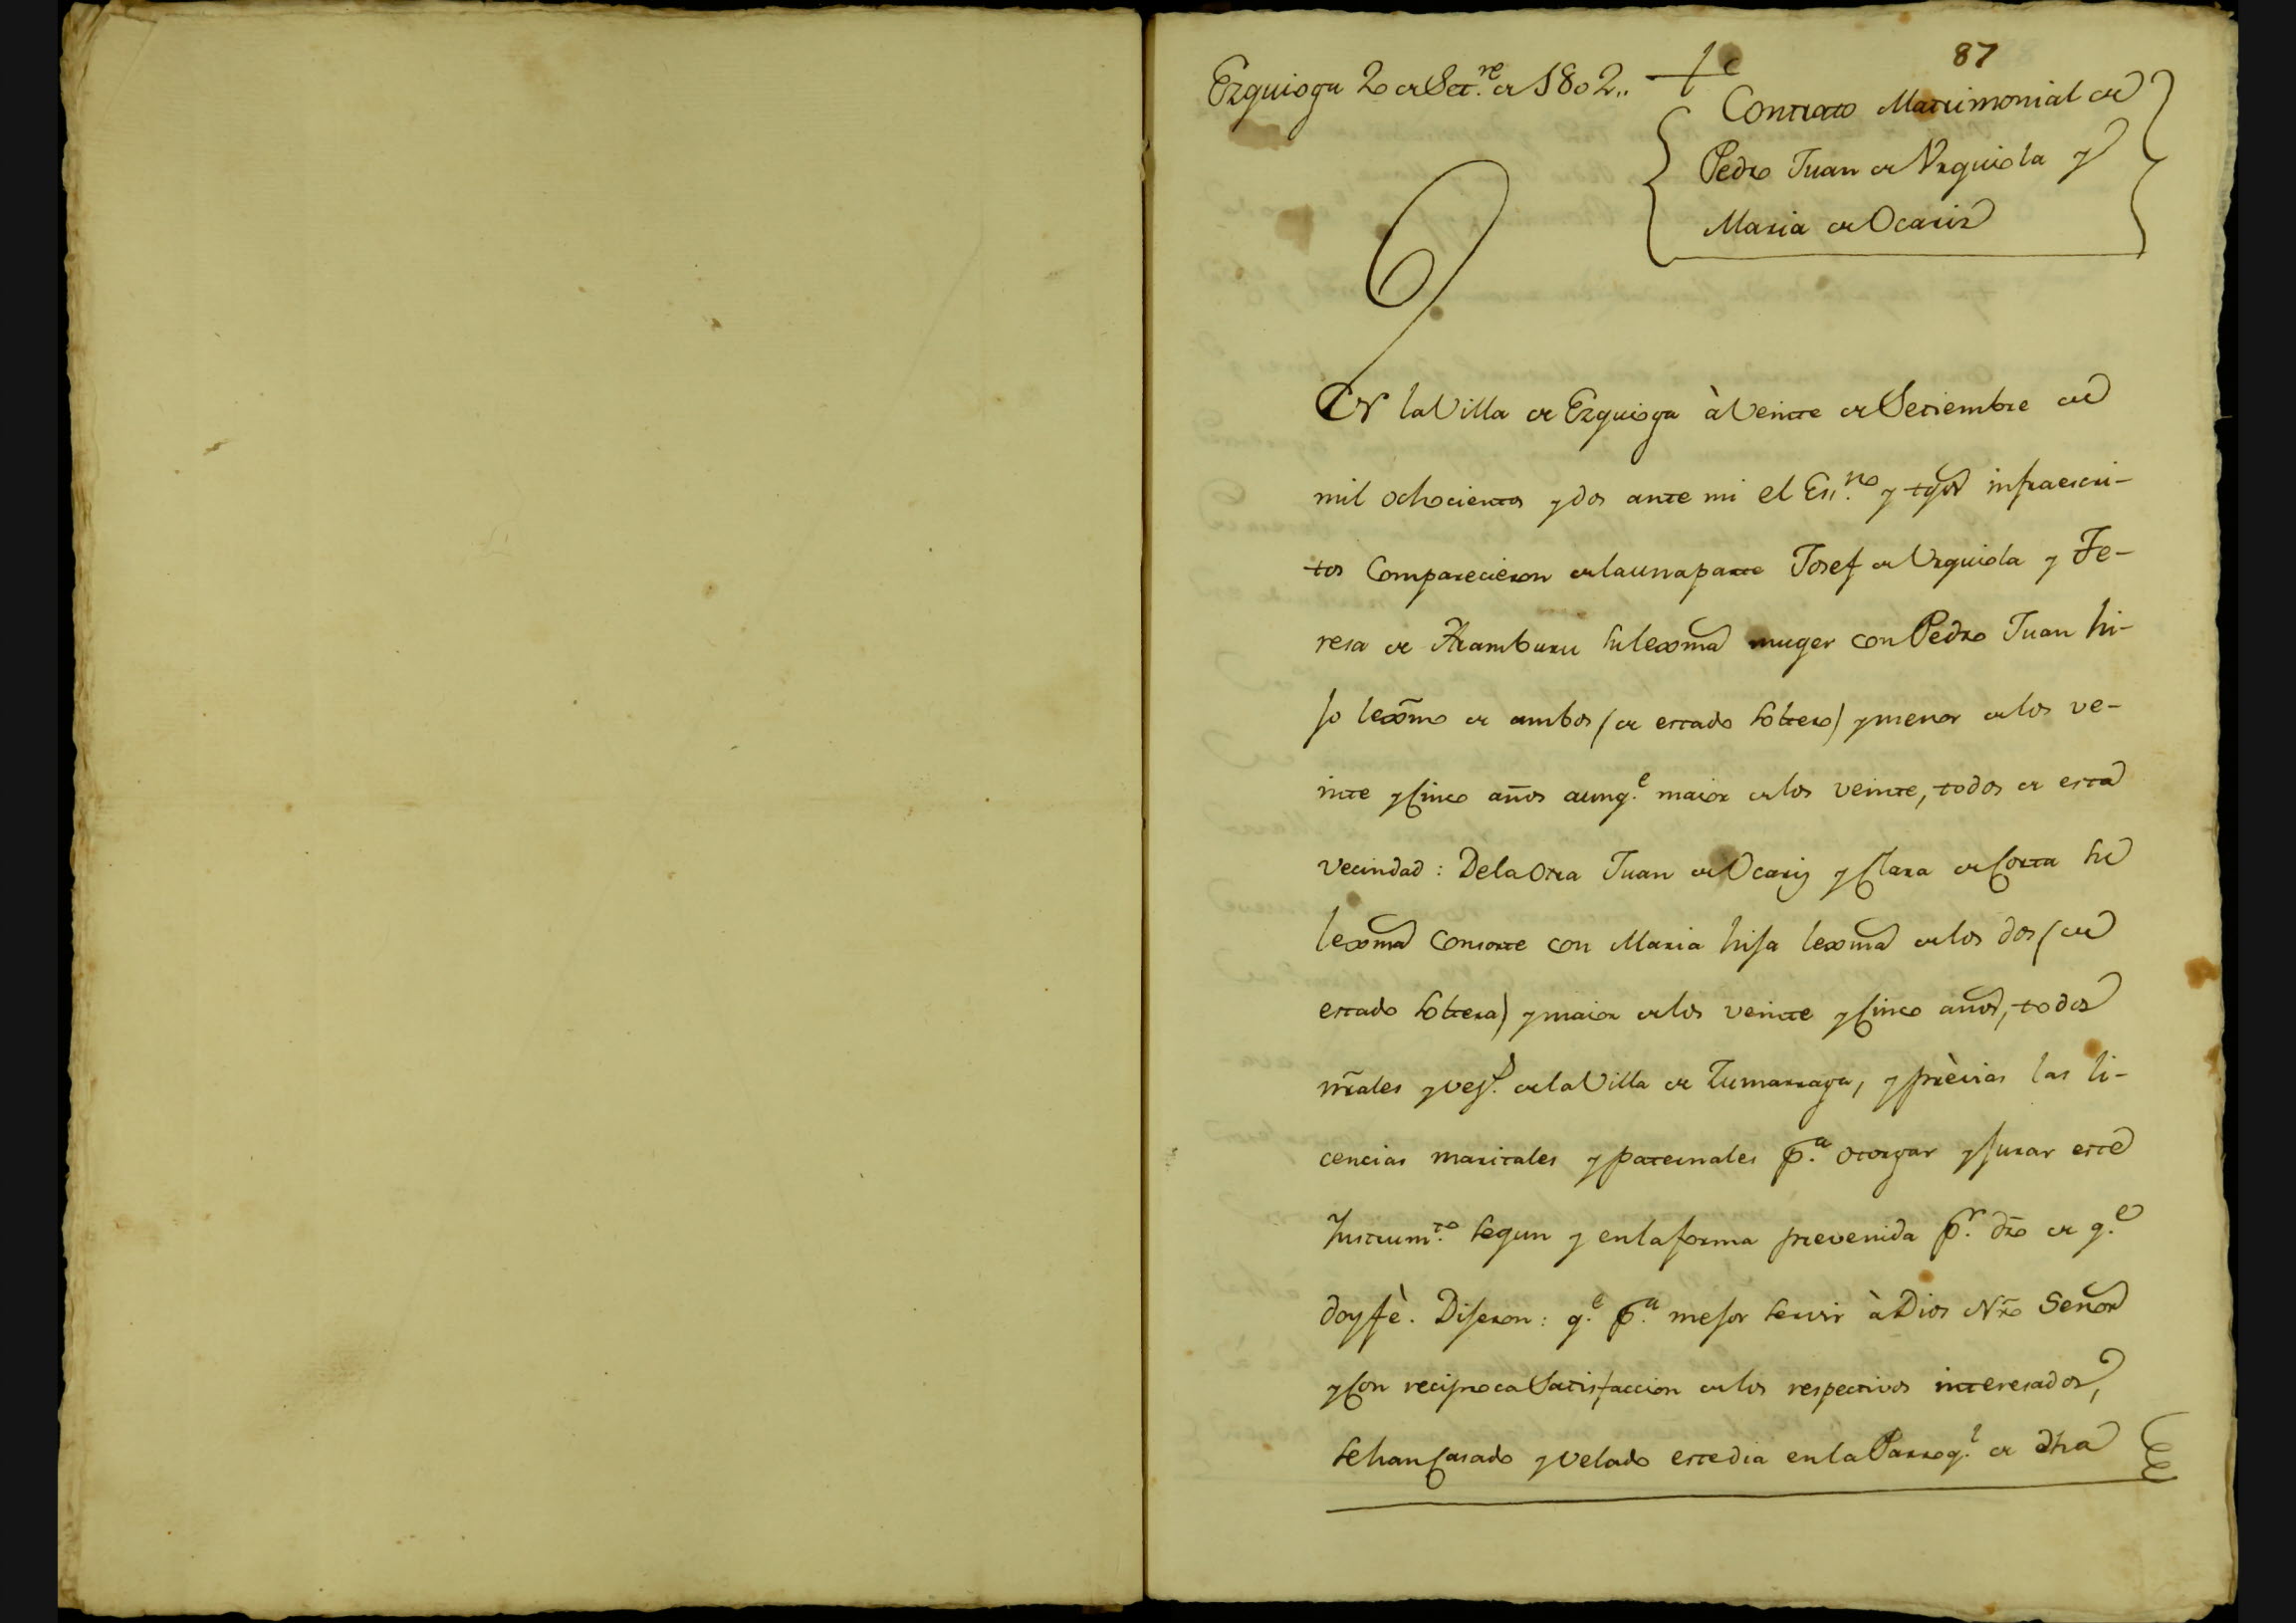 87
Ezquioga 20 de Set.re de 1802,,
Contrato Matrimonial de
Pedro Juan de Vrquiola y
Maria de Ocariz
En la Villa de Ezquioga à Veinte de Setiembre de
mil ochocientos y dos ante mi el Ess.no y tgos infraescri-
tos Comparecieron de la una parte Josef de Urquiola y Te-
resa de Aramburu su lexma muger con Pedro Juan hi-
jo lexmo de ambos (de estado soltero) y menor de los ve-
inte y Cinco años aunq.e maior de los veinte, todos de esta
vecindad: De la Otra Juan de Ocariz y Clara de Corta su
lexma Consorte con Maria hija lexma de los dos (de
estado soltera) y maior de los veinte y Cinco años, todos
nrales y vez.s de la Villa de Zumarraga, y prèvias las li-
cencias maritales y paternales p.a otorgar y jurar este
Instrum.to segun y en la forma prevenida p.r dro de q.e
doy fè. Dijeron: q.e p.a mejor servir à Dios Nro Señor
y Con reciproca Satisfaccion de los respectivos interesados,
se han Casado y Velado este dia en la Parroq.l de dha